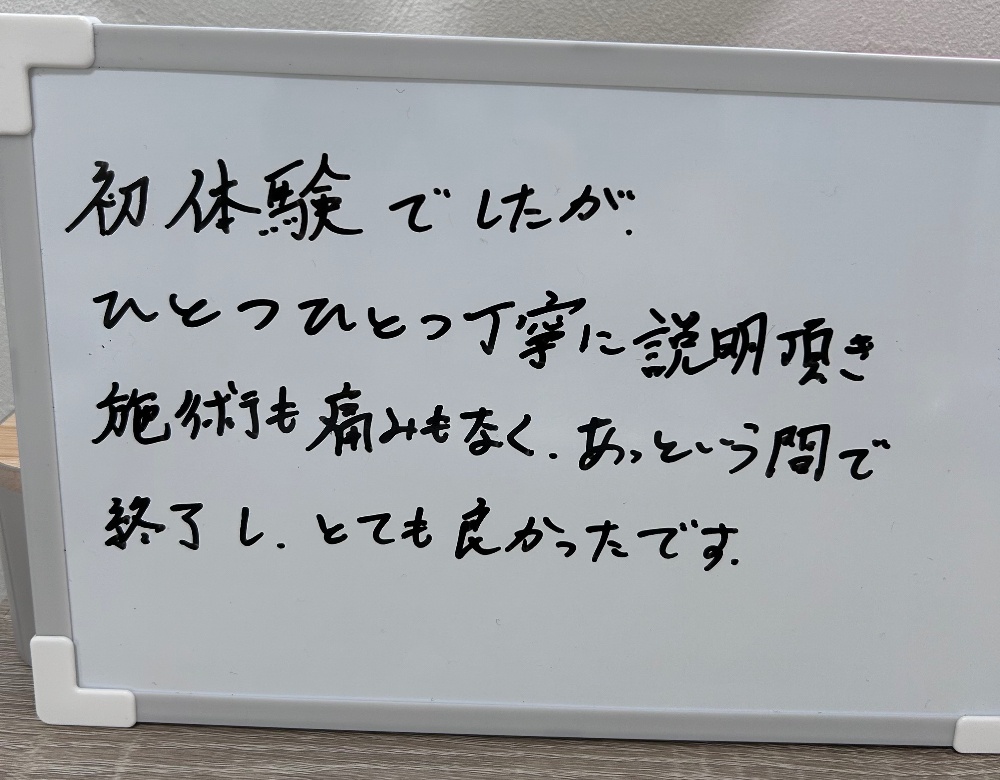 初体験でしたが.
ひとつひとつ丁寧に説明頂き
施術も痛みもなく.あっという間で
終了し.とても良かったです.